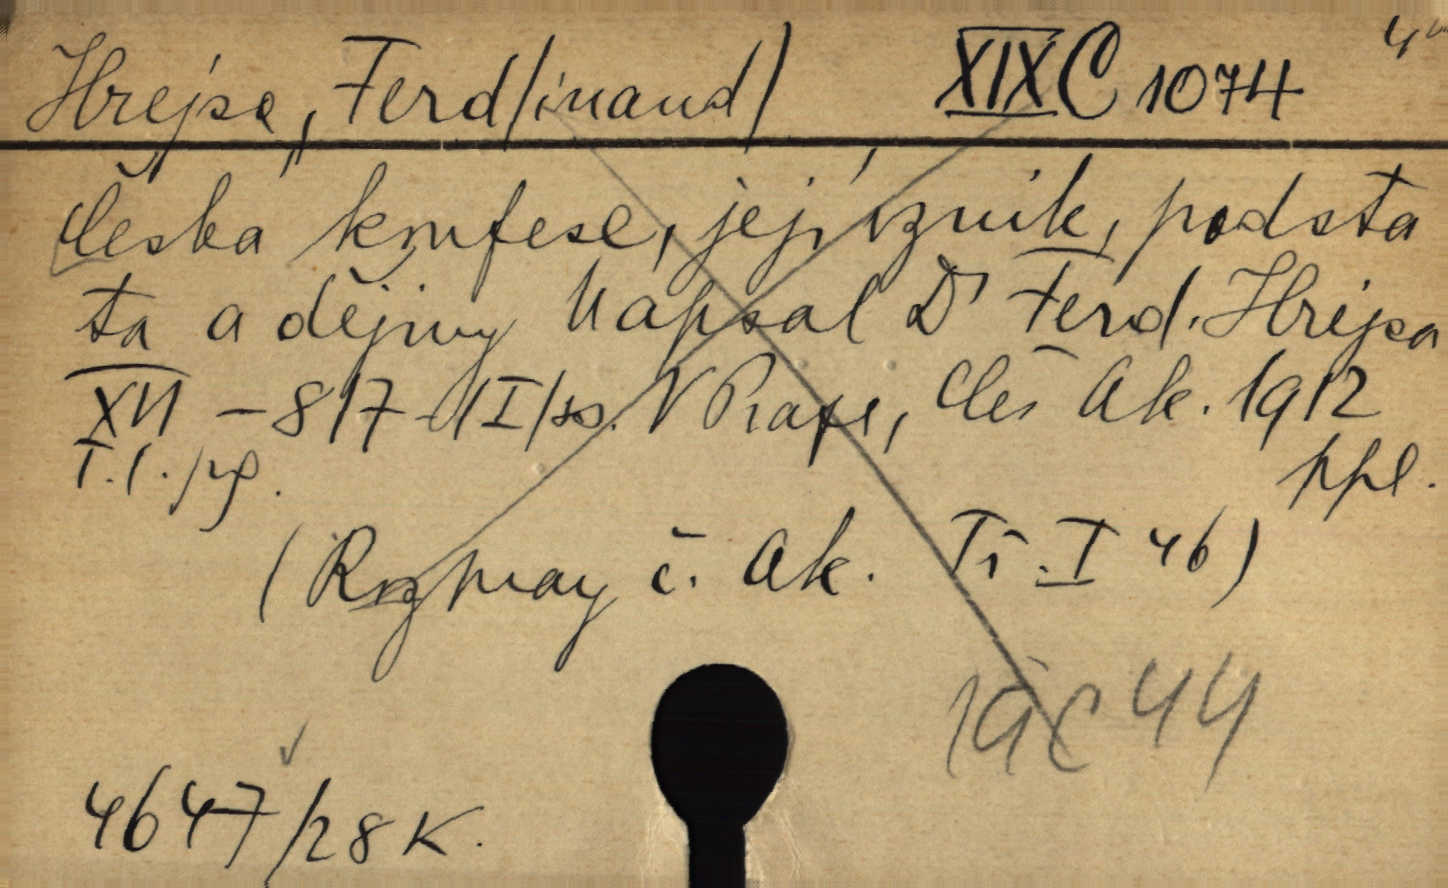 Hrejsa, Ferd/inand/ XIX C 1074 4°
Česká konfese, její vznik, podsta
ta a dějiny Napsal Dr Ferd. Hrejsa
XVI – 817 – /I/ so. V Praze, Čes Ak. 1912
T.l. ppl.
(Rozpravy č. Ak. Tř. I 46)
19 C 44
4647/28 K.